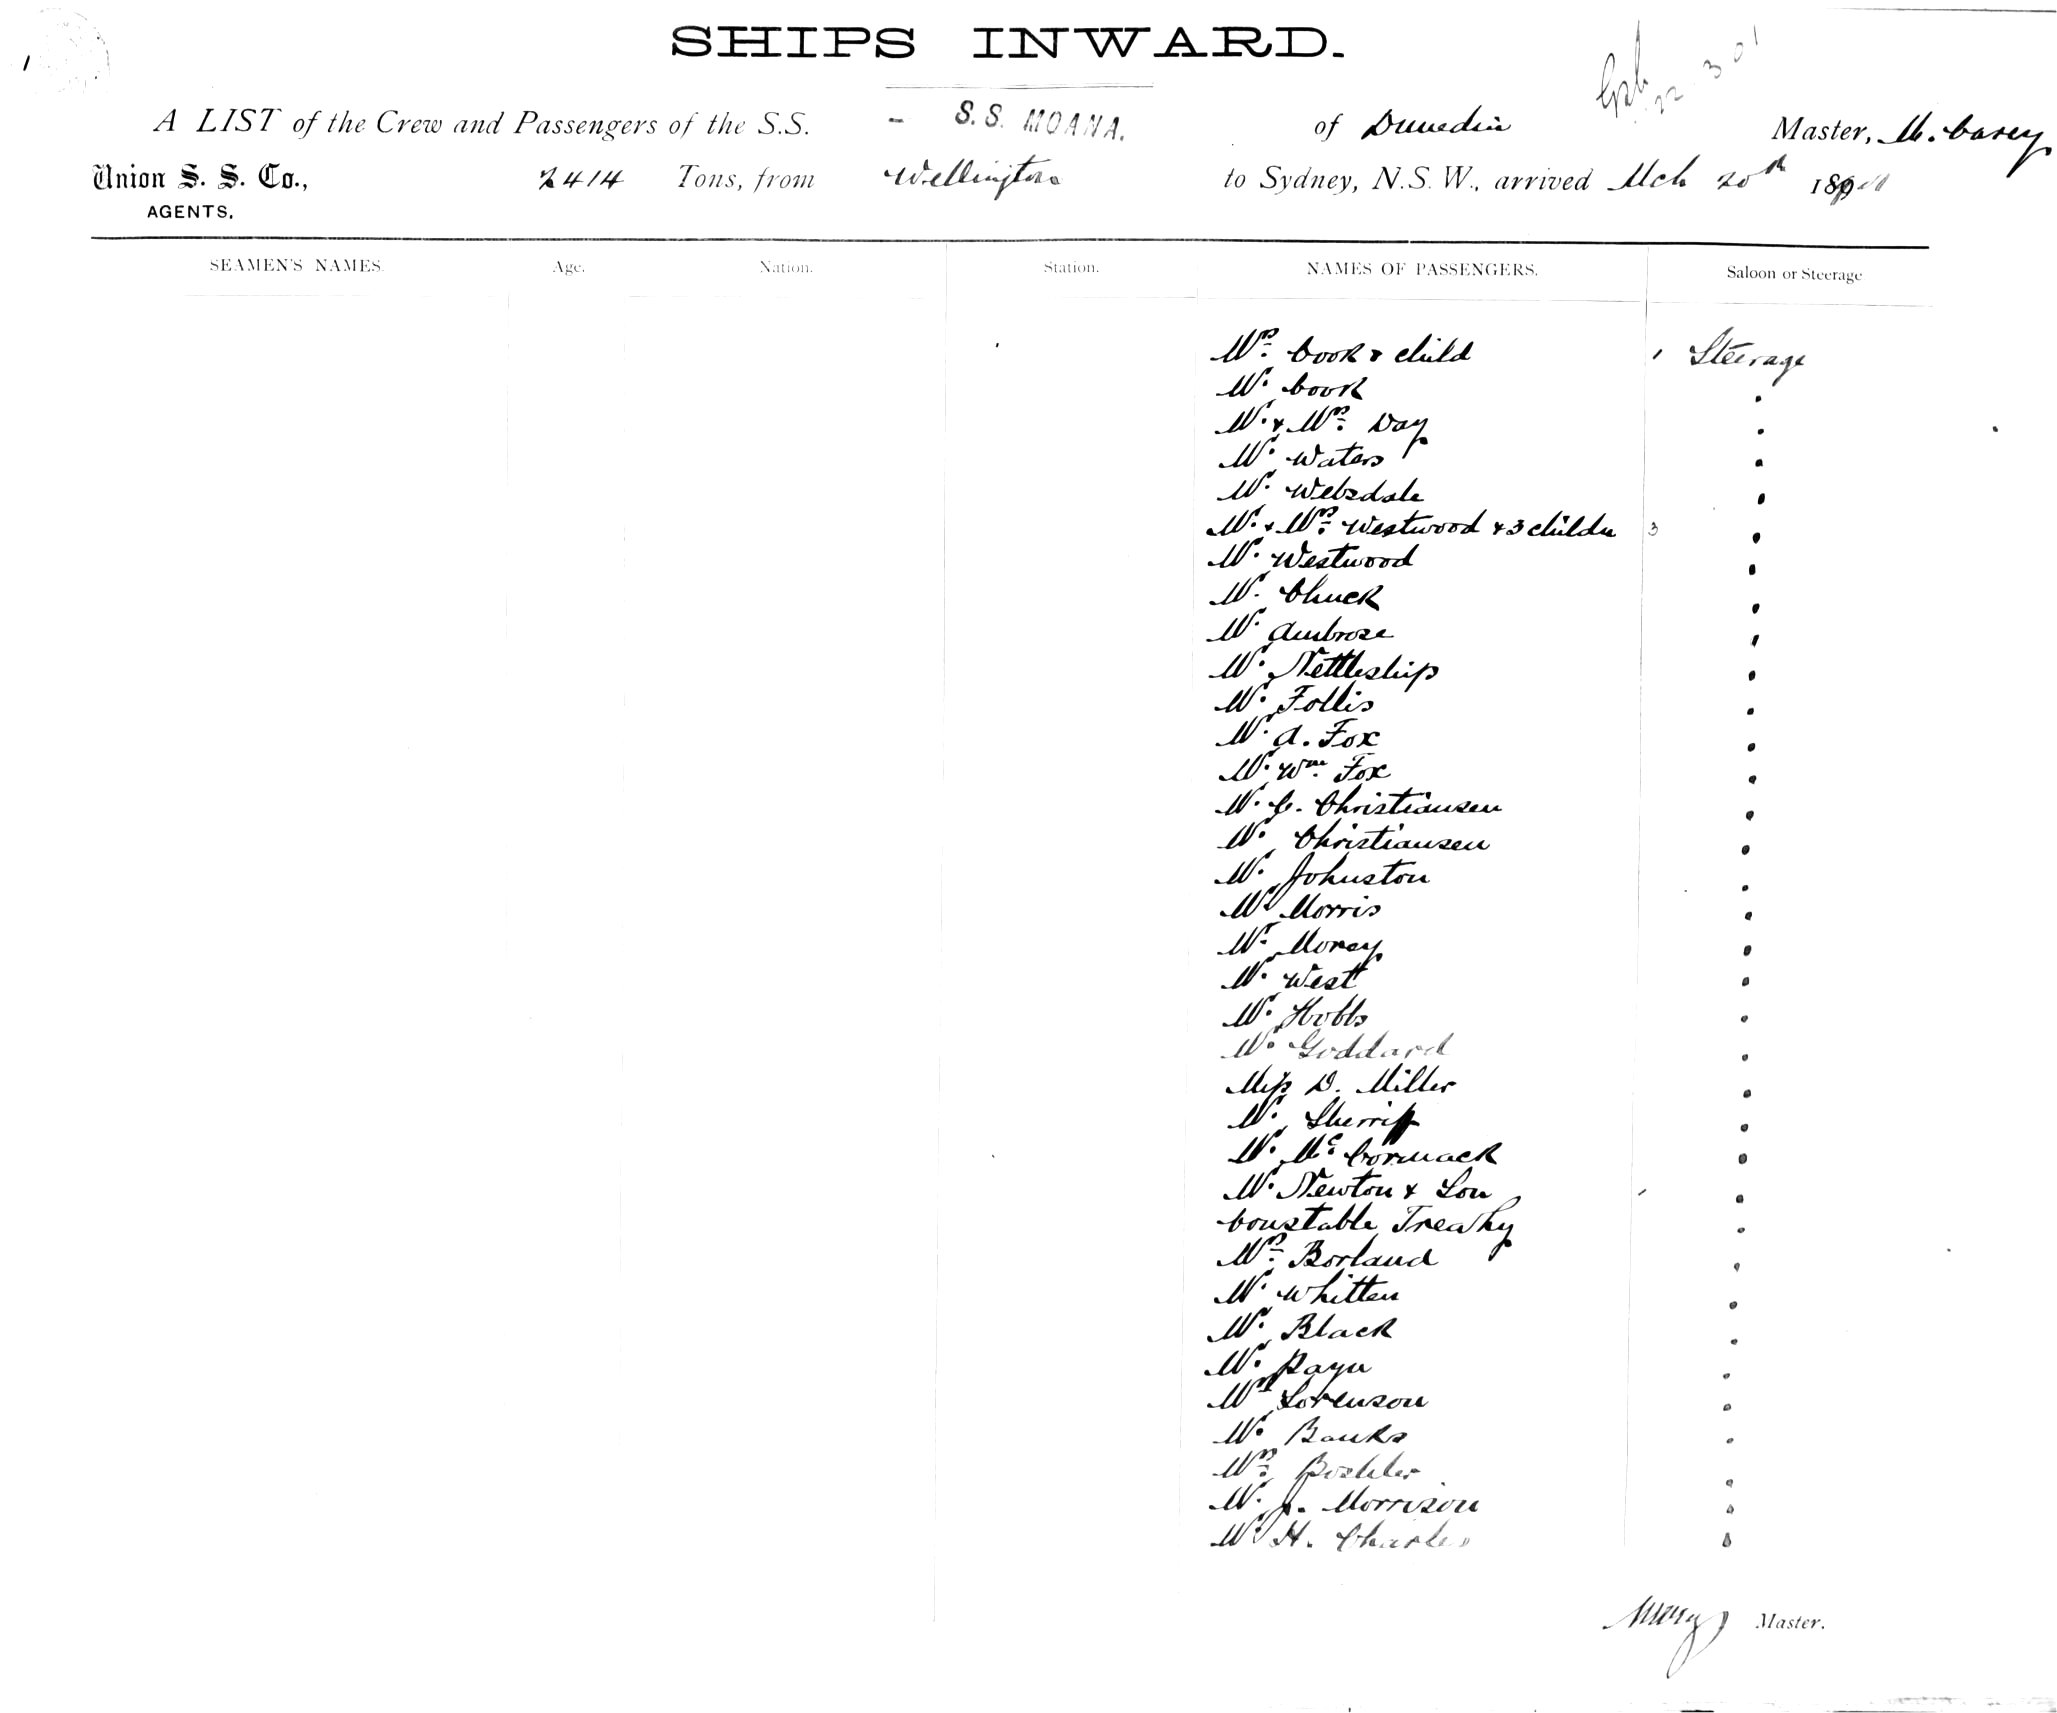 SHIPS INWARD.
22 3 01
A LIST of the Crew and Passengers of the S.S. - S.S. MOANA. of Dunedin Master, M. Carey
Union S. S. Co., 2414 Tons, from Wellington to Sydney, N.S.W., arrived Mch 20th
AGENTS.
SEAMEN'S NAMES. Age. Nation. Station. NAMES OF PASSENGERS. Saloon or Steerage
Mrs. Cook & child 1 Steerage
Mr. Cook
Mr. & Mrs. Day
Mr. Waters
Mr. Websdale
Mr. & Mrs. Westwood & 3 childn 3
Mr. Westwood
Mr. Chuck
Mr. Ambrose
Mr. Nettleship
Mr. Follis
Mr. A. Fox
Mr. Wm. Fox
Mr. C. Christiansen
Mr. Christiansen
Mr. Johnston
Mr. Morris
Mr. Morey
Mr. West
Mr. Hobbs
Mr. Goddard
Miss D. Miller
Mr. Sherriff
Mr. Mc.Cormack
Mr. Newton & Son
Constable Treahy
Mrs. Borland
Mr. Whitten
Mr. Black
Mr.
Mr. Sorenson
Mr. Banks
Mrs.
Mr. J. Morrison
Mr. H. Charles
Master.